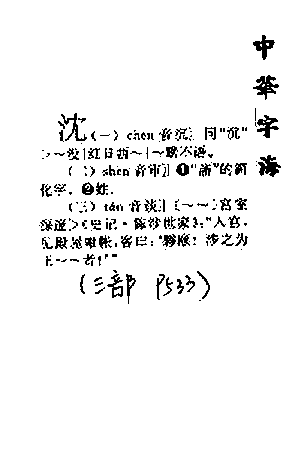 中華字海
沈(一)chén[音沉]同"沉"
▷~没|红日西~|~默不语。
(二)shěn[音审]❶"瀋"的简
化字。❷姓。
(三)tán[音谈][~~]宫室
深邃▷《史记·陈涉世家》:"入宫,
见殿屋帷帐,客曰:'夥颐!涉之为
王~~者!'"
(三部 P533)